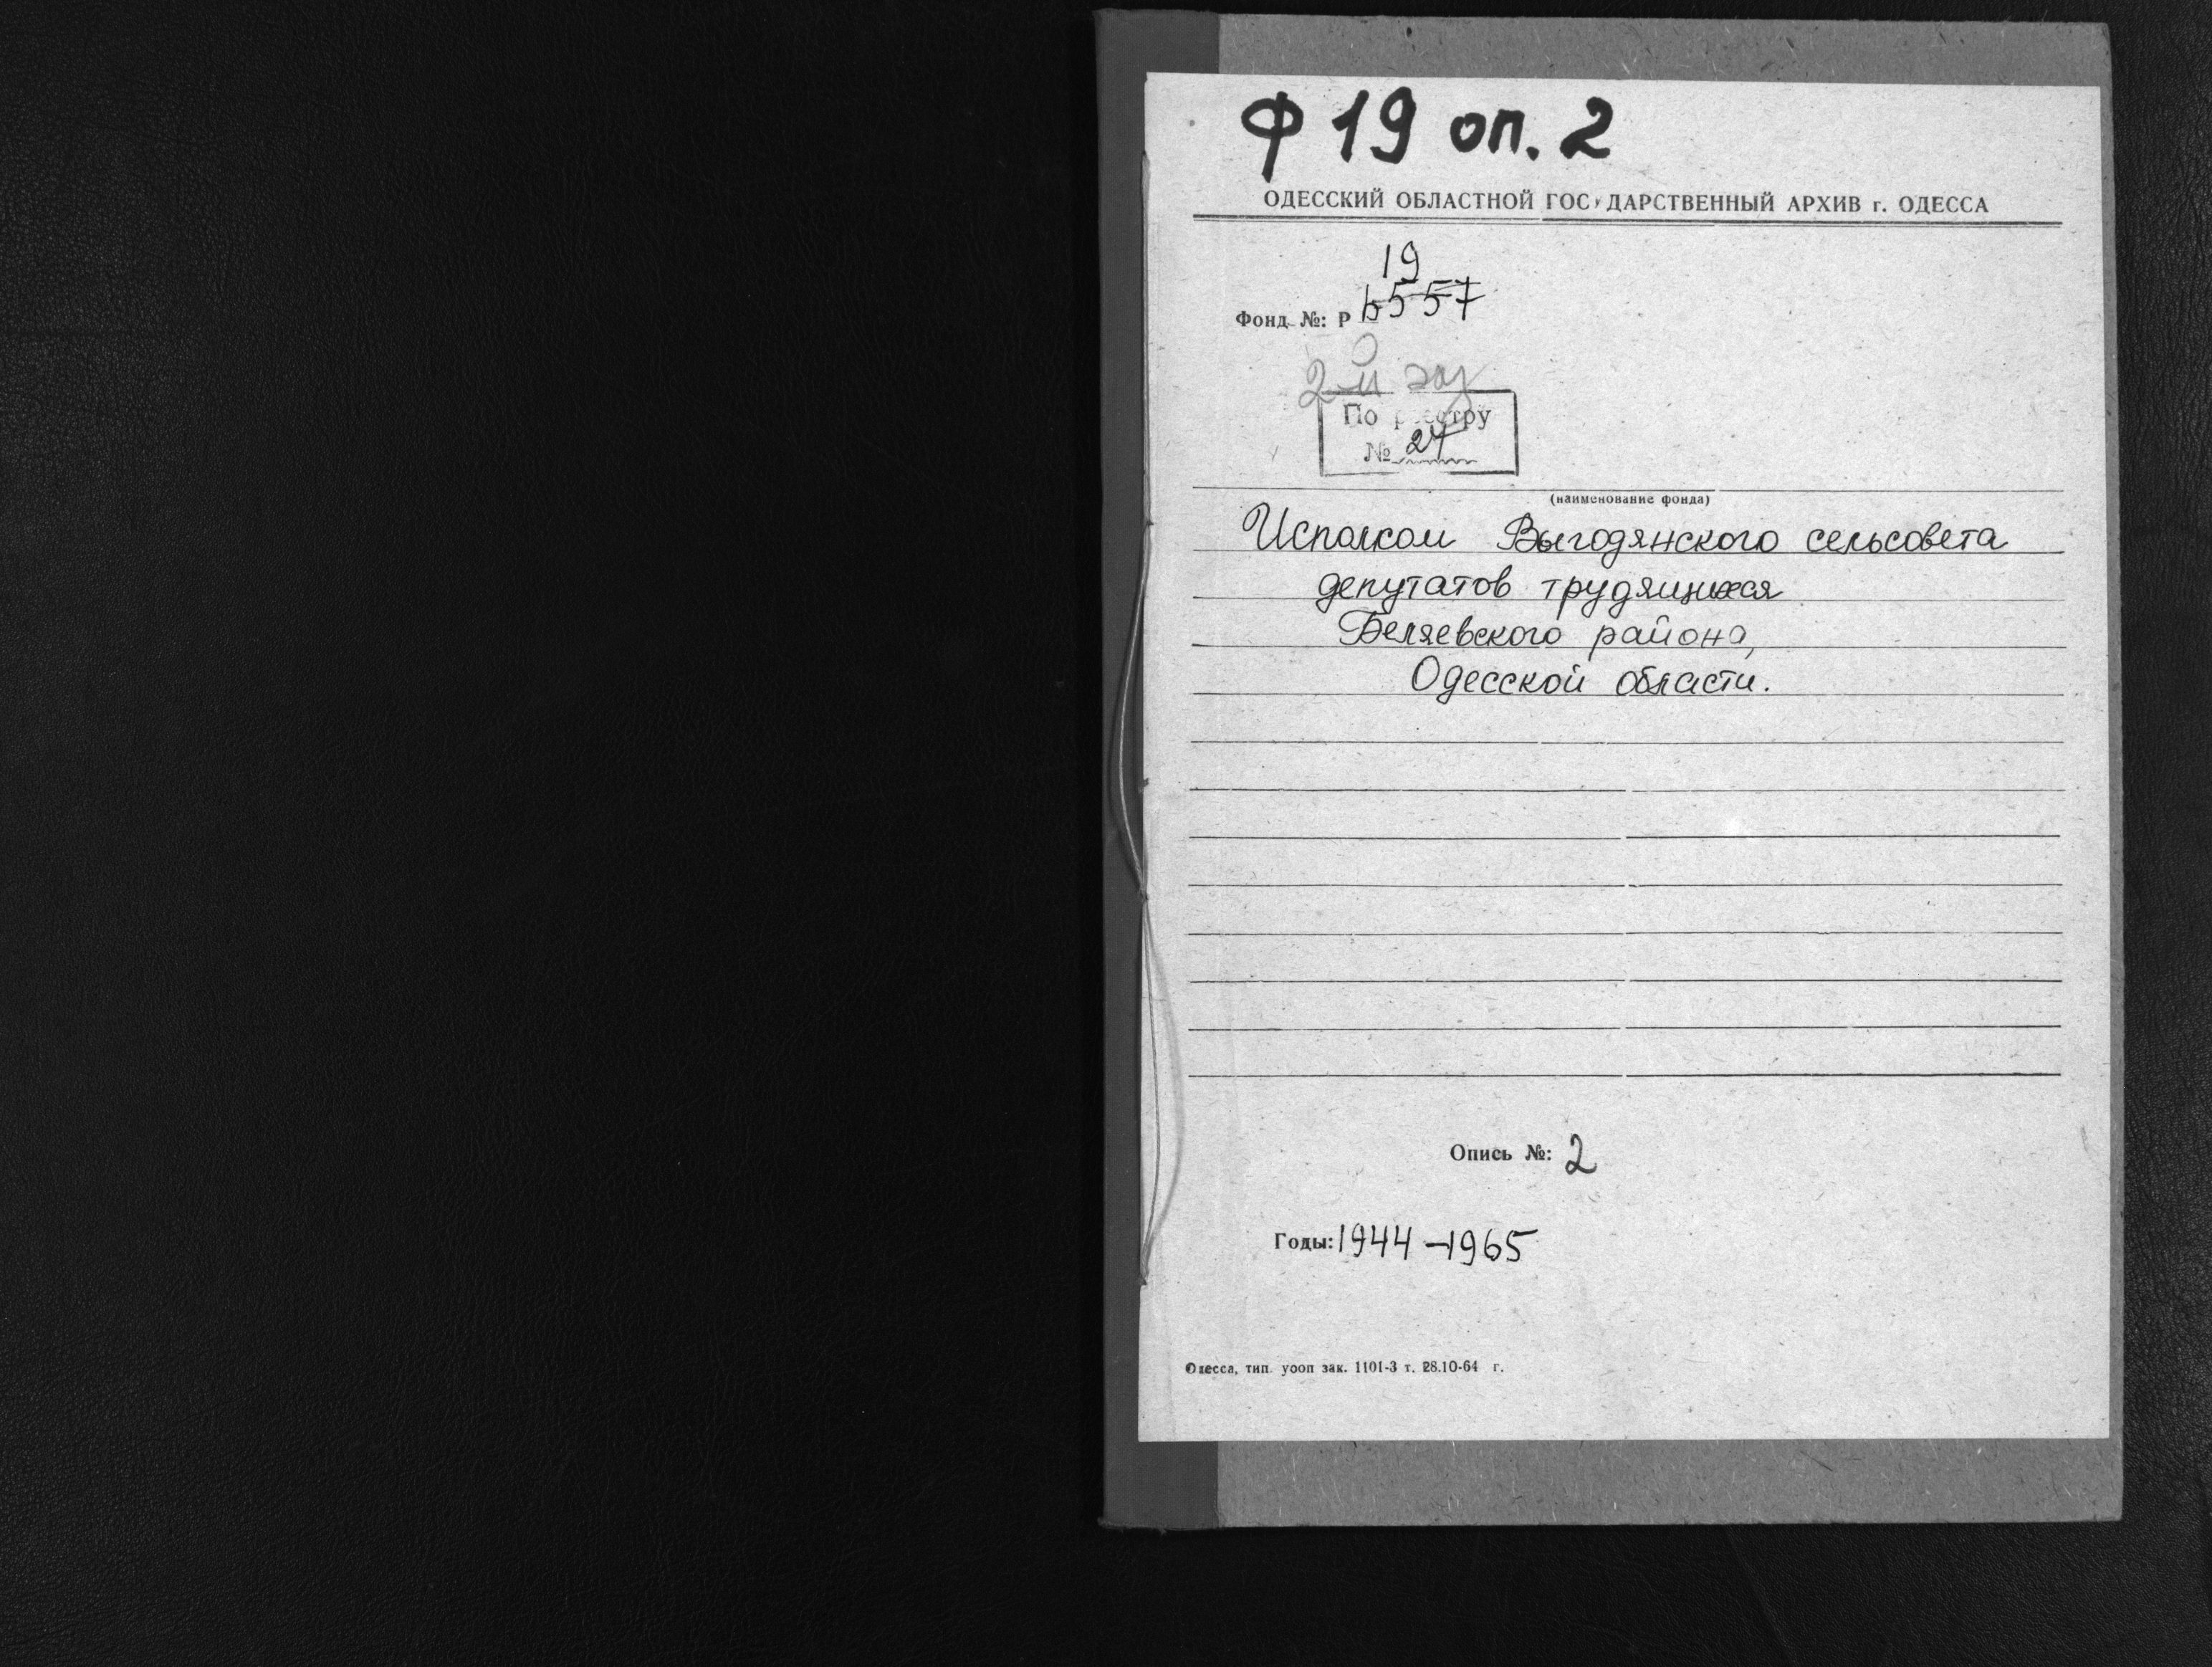 Ф 19 оп. 2
ОДЕССКИЙ ОБЛАСТНОЙ ГОСУДАРСТВЕННЫЙ АРХИВ г. ОДЕССА
19
Фонд №: Р 5557
2-й экз
По реестру
№ 27
(наименование фонда)
Исполком Выгодянского сельсовета
депутатов трудящихся
Беляевского района,
Одесской области.
Опись №: 2
Годы: 1944-1965
Одесса, тип. уооп зак. 1101-3 т. 28.10-64 г.